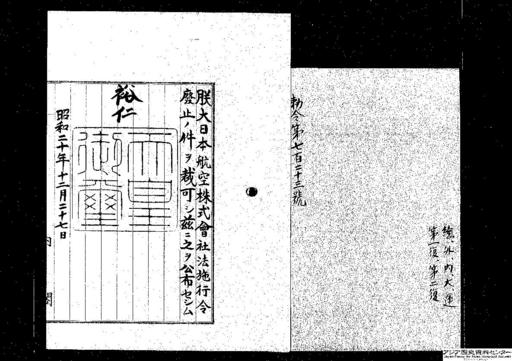 勅令第七百二十三號
總、外、内、大、運
第一復、第二復
朕大日本航空株式會社法施行令
廢止ノ件ヲ裁可シ茲ニ之ヲ公布セシム
裕仁
天皇御璽
昭和二十年十二月二十七日
内閣
アジア歴史資料センター